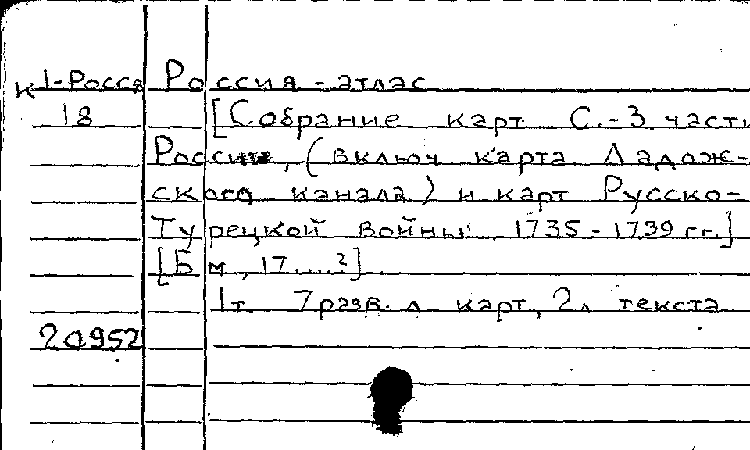 к 1-Росся Россия - атлас
18 [Собрание карт С.-З. части
России, (включ карта Ладож-
ского канала) и карт Русско-
Турецкой войны 1735 - 1739 гг.]
[Б м, 17....?]
1т. 7 разв. л карт, 2л текста
20952